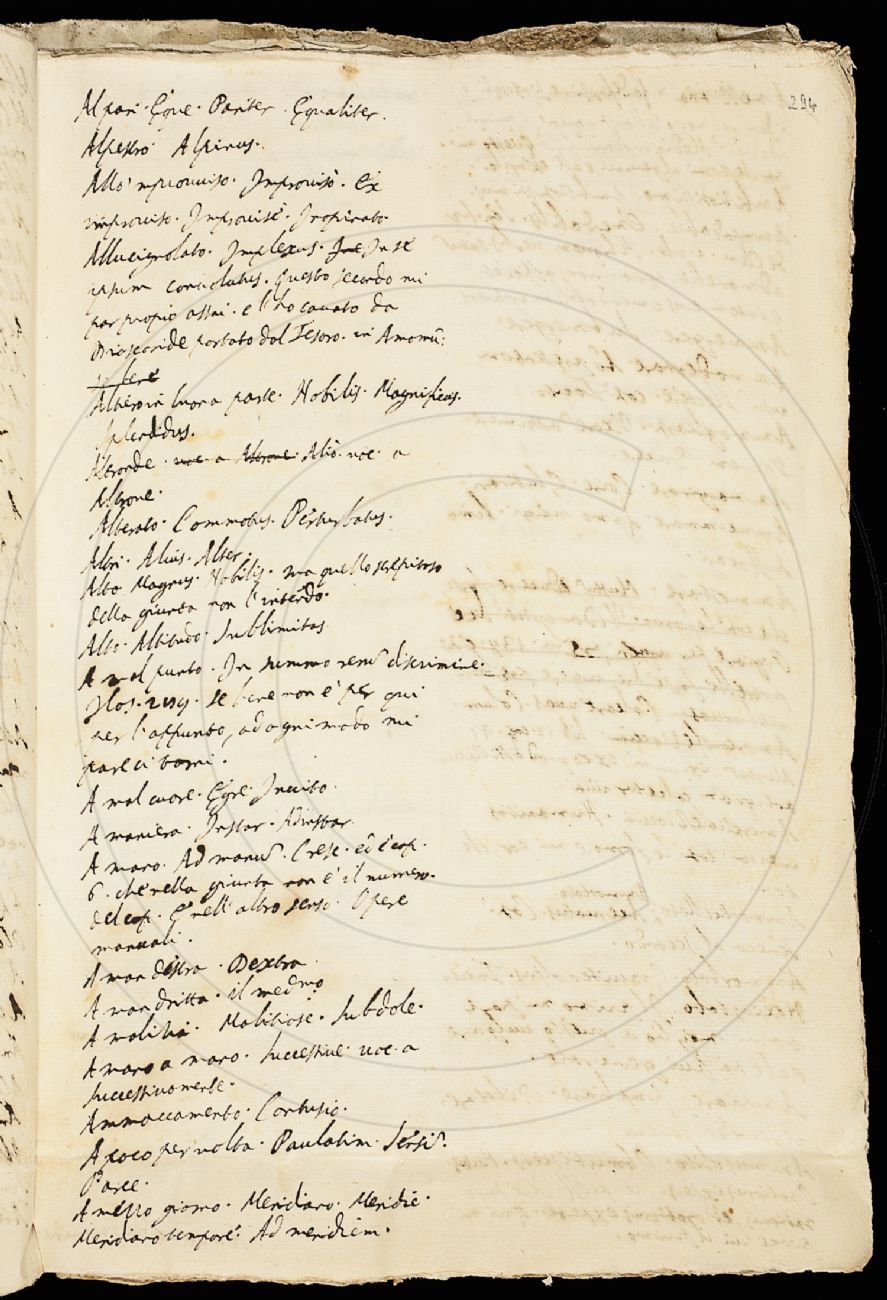 294
Al pari. Eque. Pariter. Equaliter.
Alpestro Alpinus.
All'improuiso. Improuisò. Ex
improuiso. Improuisè. Inopinato.
Allucignolato. Implexus. In se
ipsum conuolutus. questo secondo mi
par propio assai. e l'ho cauato da
Dioscoride portato dal Tesoro. in Amomū.
se bene
Altiero in buona parte. Nobilis. Magnificus.
Splendidus.
Altronde. uoc. a Altrone. Aliò. uoc. a
Altrone.
Alterato. Commotus. Perturbatus.
Altri. Alius. Alter.
Alto Magnus. Nobilis. ma quello strepitoso
della giunta non l'intēdo.
Alto. Altitudo. Sublimitas.
A mal punto. In summo rerū discrimine.
Flos. 2159. se bene non è per qui
per l'appunto, ad ogni modo mi
pare ci torni.
A mal cuore. Egre. Inuito.
A maniera. Instar. Adinstar.
A mano. Ad manū. Cresc. ed è cap.
6. che nella giunta non è il numero.
del cap. E nell'altro senso. Opere
manuali.
A man destra. Dextra.
A man dritta. il medmo
A malitia. Malitiose. Subdole.
A mano a mano. Successiue. uoc. a
successiuamente.
Ammaccamento. Contusio.
A poco per uolta. Paulatim. Sensī.
Parce.
A mezzo giorno. Meridiano. Meridie.
Meridiano tempore. Ad meridiem.